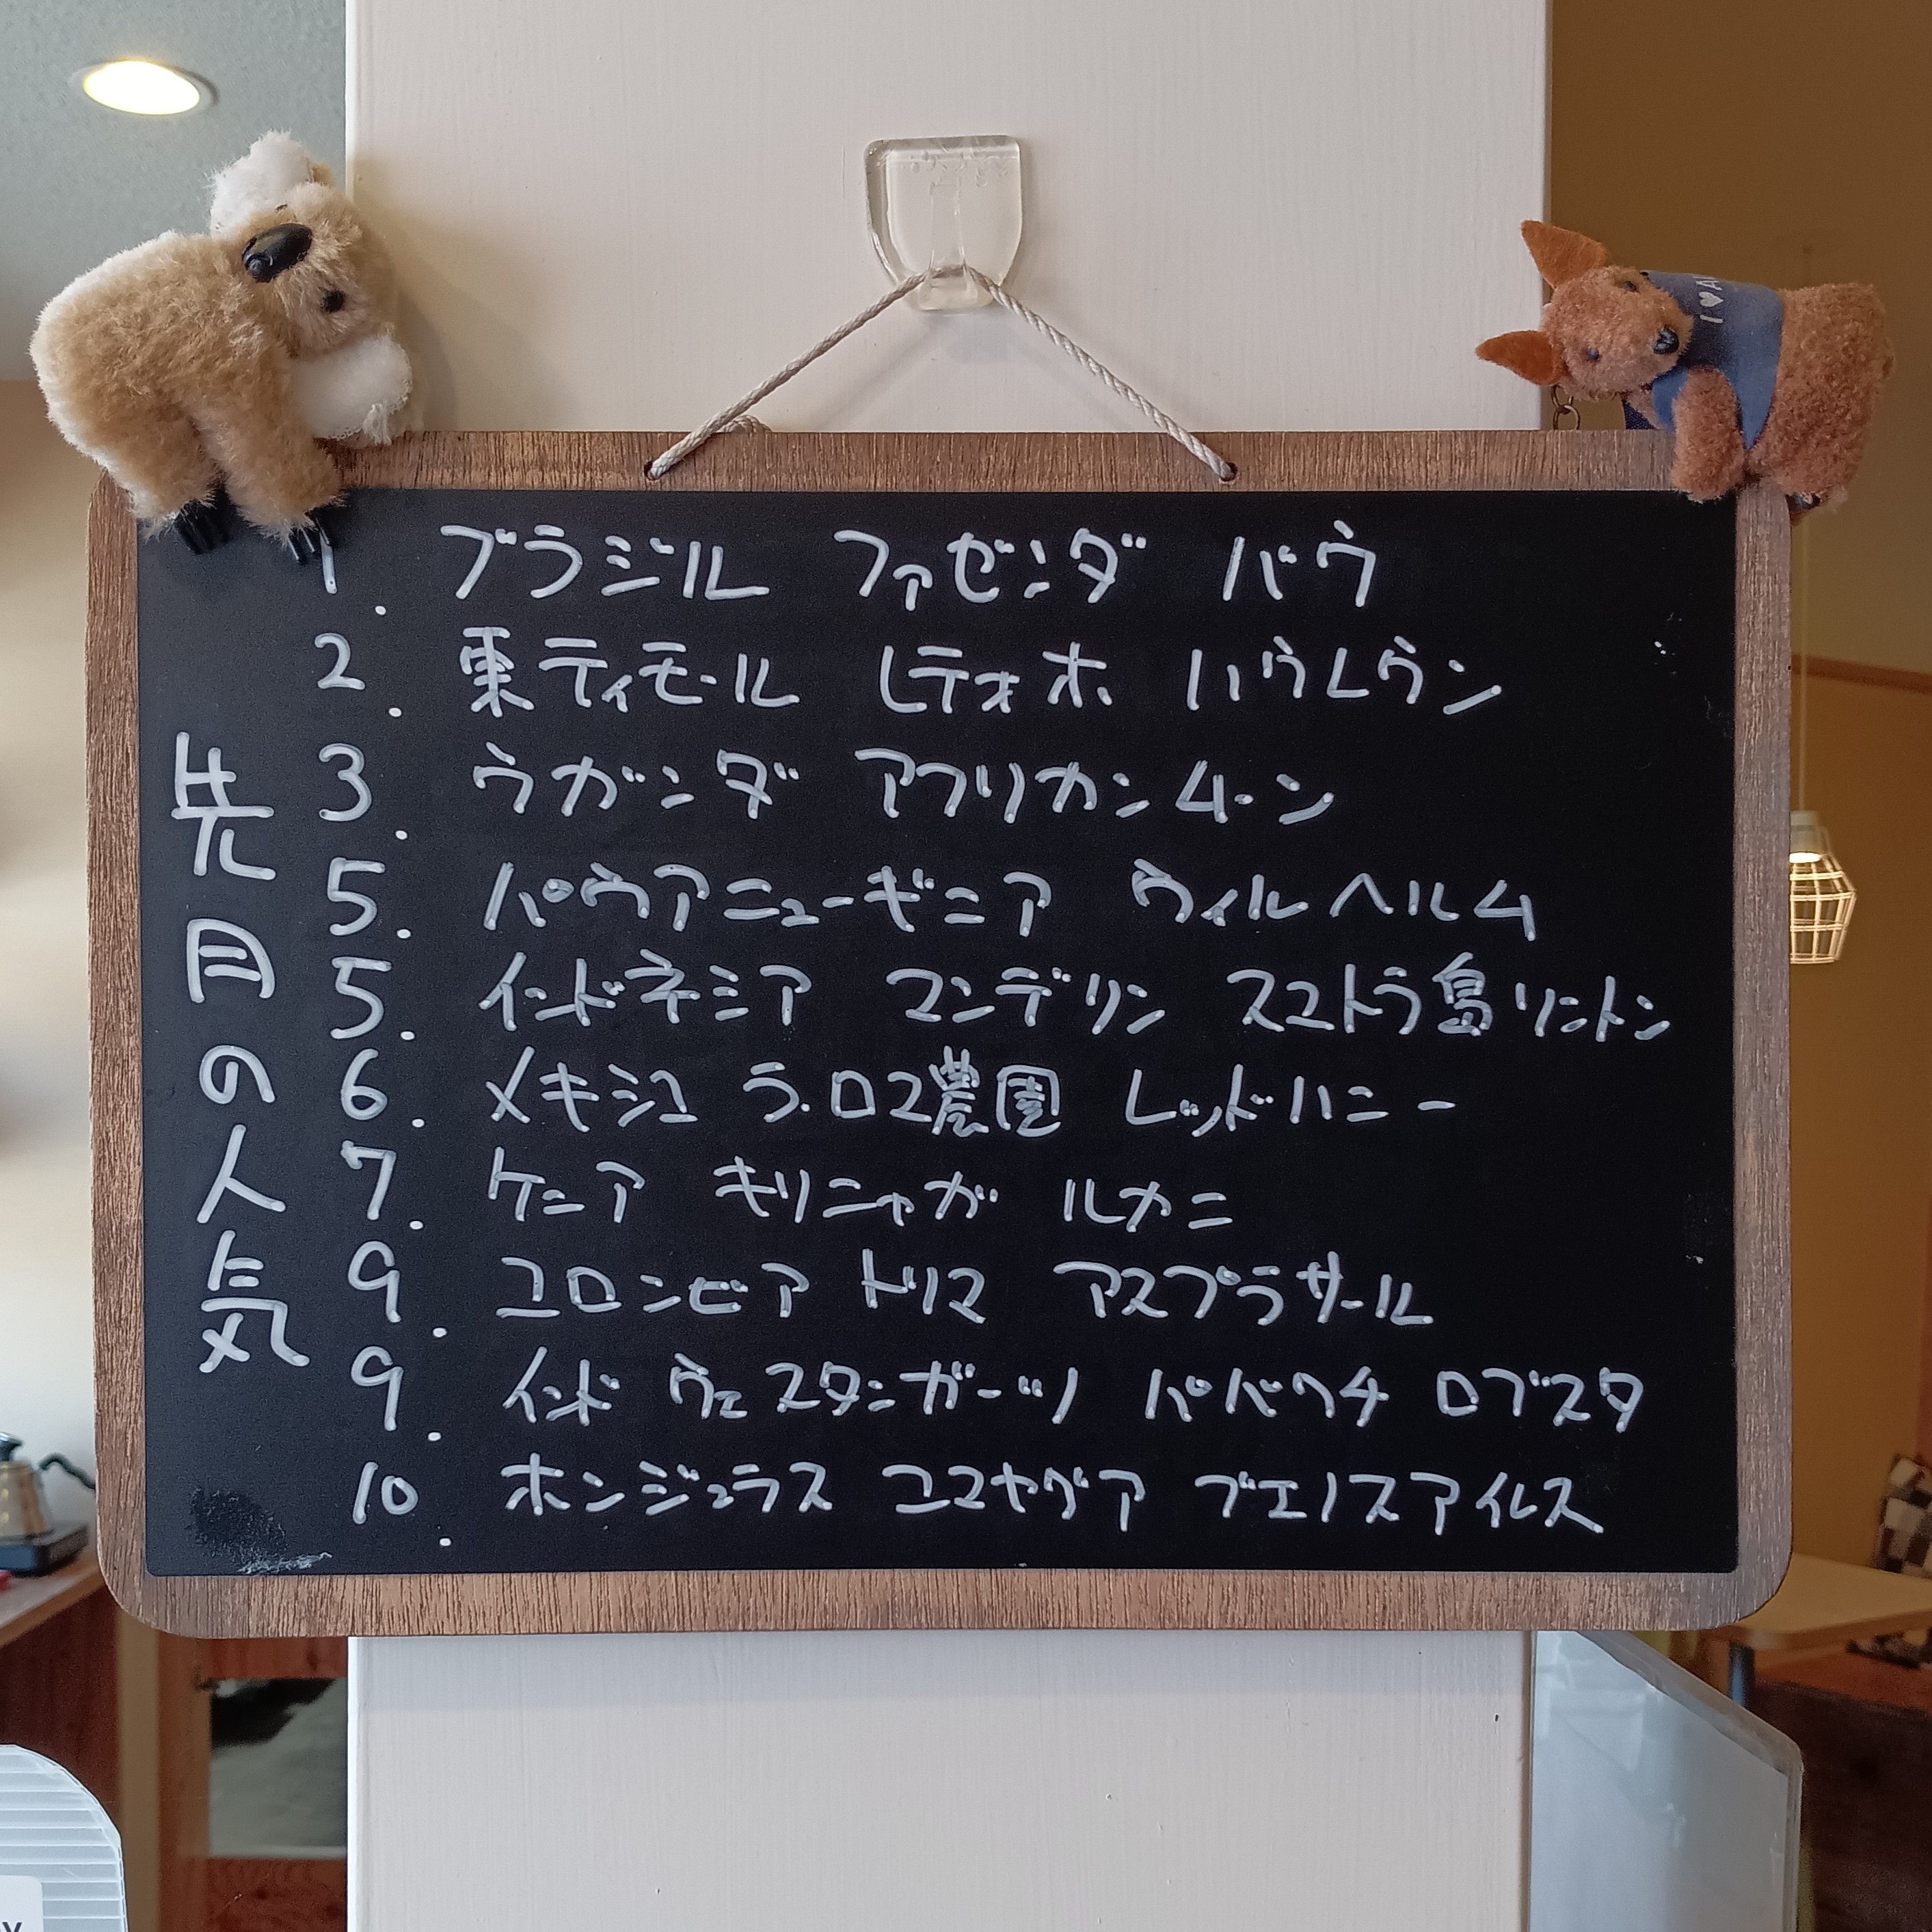 先月の人気
1. ブラジル ファゼンダ バウ
2. 東ティモール レテフォホ ハウレウン
3. ウガンダ アフリカンムーン
5. パプアニューギニア ウィルヘルム
5. インドネシア マンデリン スマトラ島リントン
6. メキシコ ラ・ロマ農園 レッドハニー
7. ケニア キリニャガ ルカニ
9. コロンビア トリマ アスプラサール
9. インド ウエスタンガーツ パババウチ ロブスタ
10. ホンジュラス コマヤグア ブエノスアイレス
I ♥ A